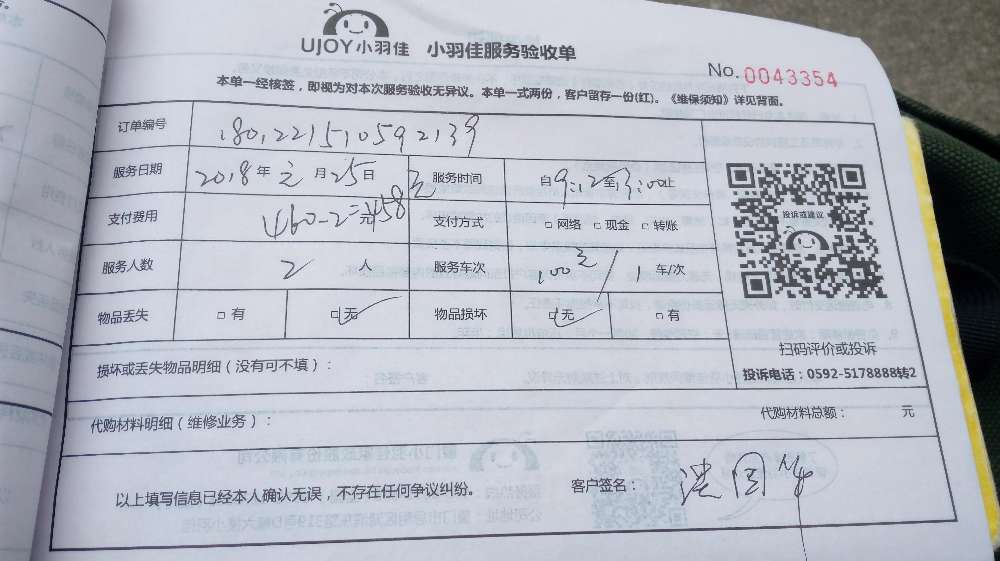 UJOY小羽佳 小羽佳服务验收单
No. 0043354
本单一经核签，即视为对本次服务验收无异议。本单一式两份，客户留存一份(红)。《维保须知》详见背面。
订单编号 1801221510592139
服务日期 2018年元月25日 服务时间 自9:12至13:00止
支付费用 460-2=458元 支付方式 □ 网络 □ 现金 □ 转账
服务人数 2 人 服务车次 100元/1 车/次
物品丢失 □ 有 □ 无 物品损坏 □ 无 □ 有
投诉或建议
扫码评价或投诉
投诉电话：0592-5178888转2
损坏或丢失物品明细（没有可不填）：
代购材料明细（维修业务）： 代购材料总额： 元
以上填写信息已经本人确认无误，不存在任何争议纠纷。 客户签名：